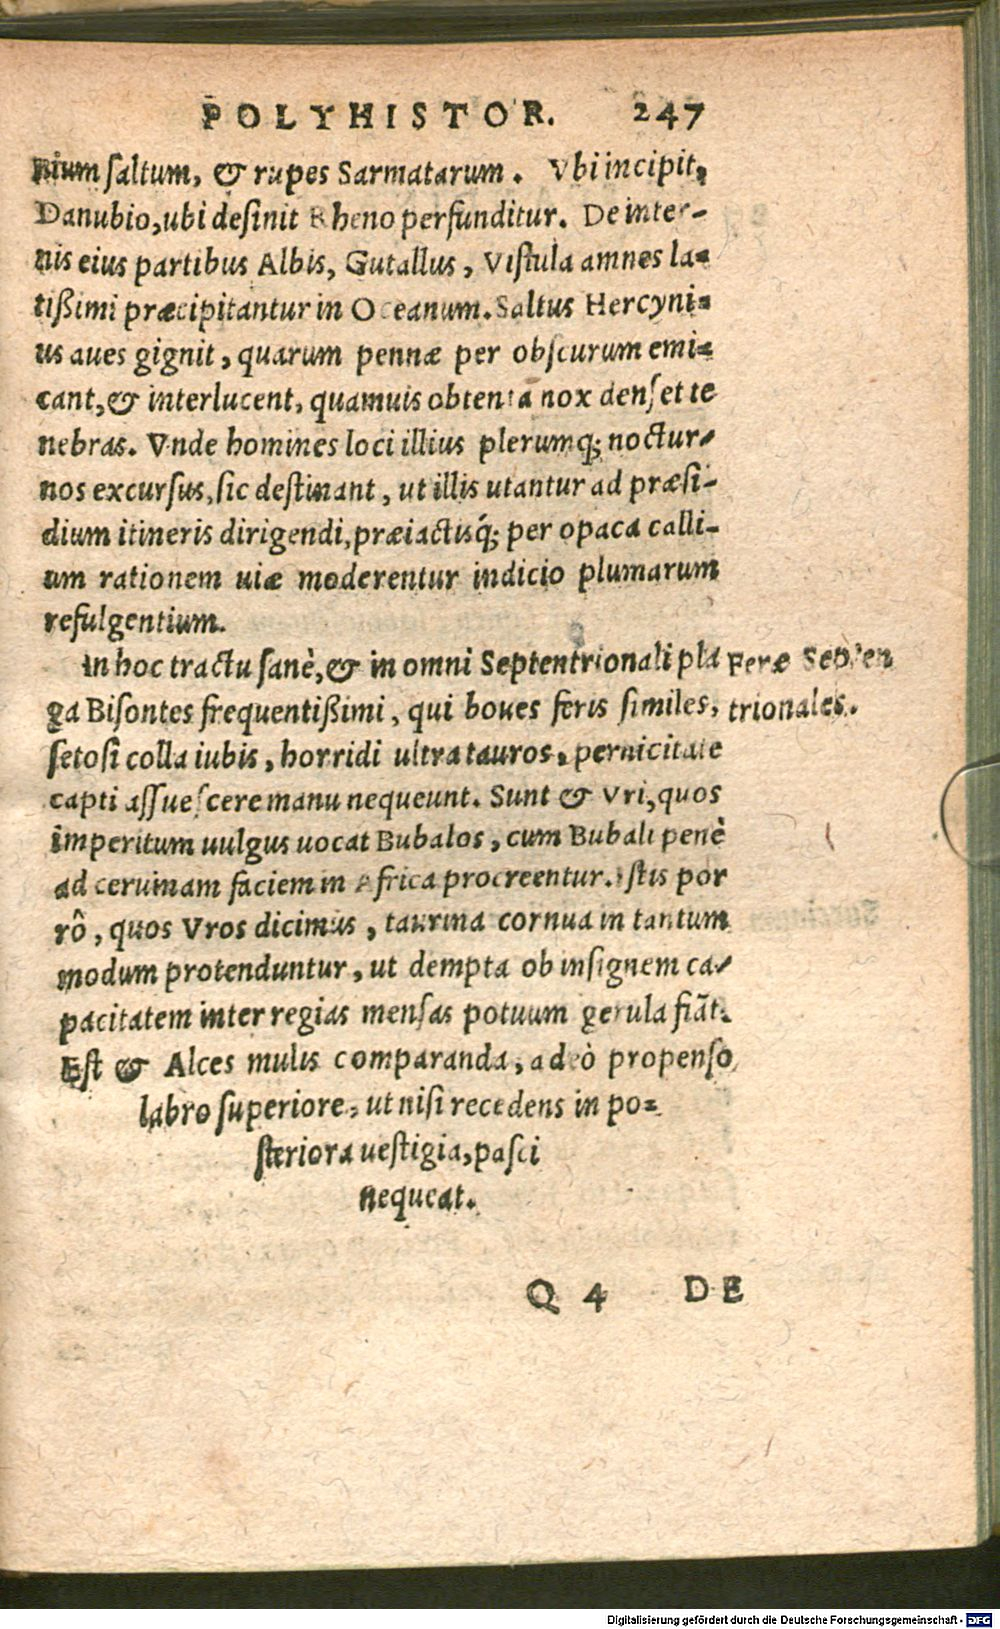 POLYHISTOR. 247
nium saltum, & rupes Sarmatarum. Vbi incipit,
Danubio, ubi desinit Rheno perfunditur. De inter-
nis eius partibus Albis, Gutallus, Vistula amnes la-
tißimi præcipitantur in Oceanum. Saltus Hercyni-
us aues gignit, quarum pennæ per obscurum emi-
cant, & interlucent, quamuis obtenta nox denset te
nebras. Vnde homines loci illius plerumq; noctur-
nos excursus, sic destinant, ut illis utantur ad præsi-
dium itineris dirigendi, præiactisq́; per opaca calli-
um rationem uiæ moderentur indicio plumarum
refulgentium.
In hoc tractu sanè, & in omni Septentrionali pla
Feræ Septen
ga Bisontes frequentißimi, qui boues feris similes,
trionales.
setosi colla iubis, horridi ultra tauros, pernicitate
capti assuescere manu nequeunt. Sunt & Vri, quos
imperitum uulgus uocat Bubalos, cum Bubali penè
ad ceruinam faciem in Africa procreentur. Istis por
rò, quos Vros dicimus, taurina cornua in tantum
modum protenduntur, ut dempta ob insignem ca-
pacitatem inter regias mensas potuum gerula fiãt.
Est & Alces mulis comparanda, adeò propenso
labro superiore, ut nisi recedens in po-
steriora uestigia, pasci
nequeat.
Q 4 DE
Digitalisierung gefördert durch die Deutsche Forschungsgemeinschaft - DFG